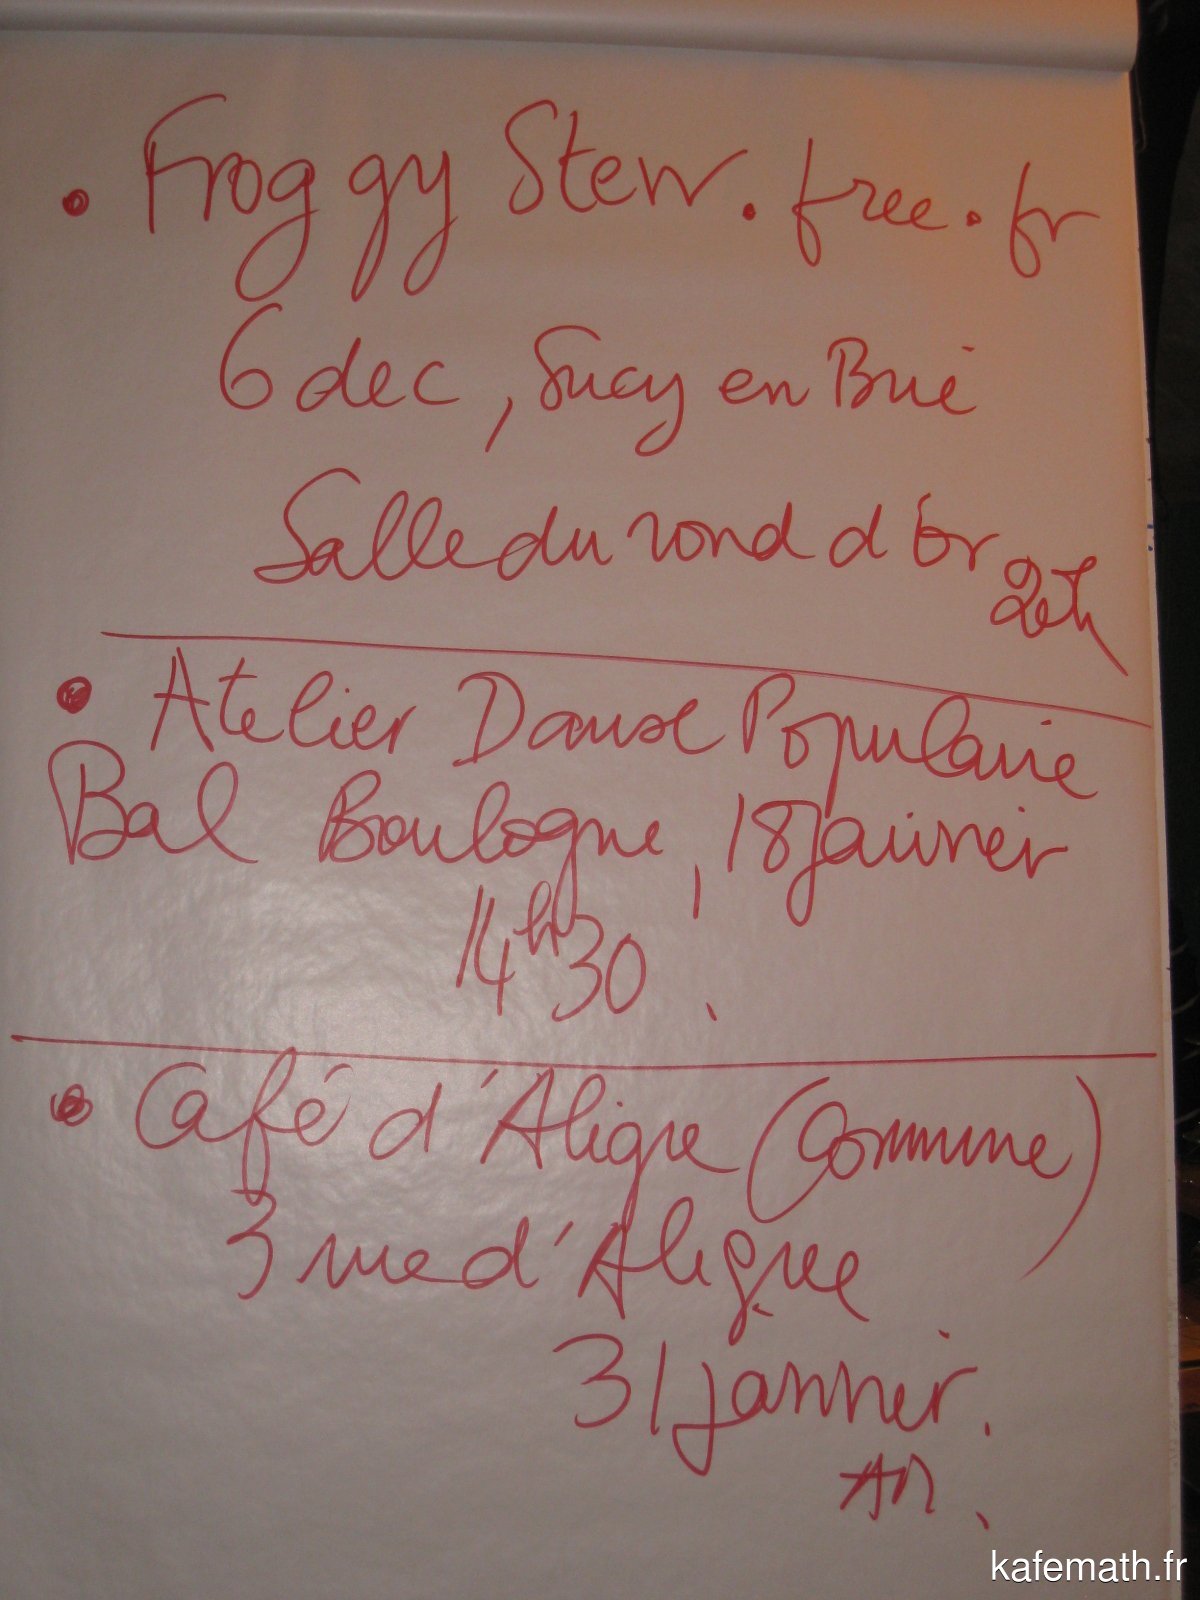 • Froggy Stew.free.fr
6 dec, Sucy en Brie
Salle du rond d'Or
20h
• Atelier Danse Populaire
Bal Boulogne, 18 janvier
14h30.
• Café d'Aligre (Commune)
3 rue d'Aligre
31 janvier.
kafemath.fr